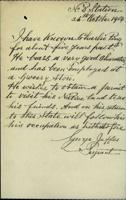 N. P. Station
26th October 1904
I have known to Charlie Ling
for about five years past.
He bears a very good character
and has been employed at
a Grocery Store.
He wishes to obtain a permit
to visit his Native Land to see
his friends. And on his return
to this State will follow his
his occupation as heretofore
George Jeffers
Sergeant